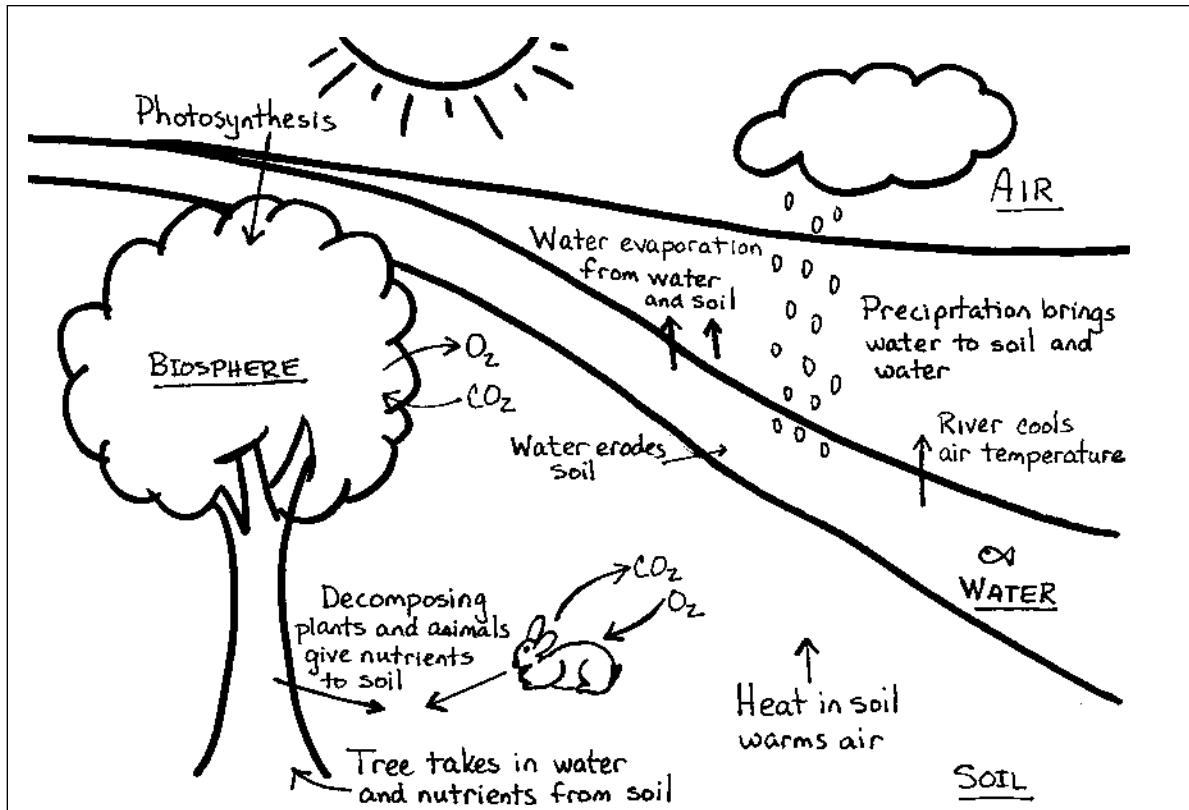 Photosynthesis
AIR
Water evaporation
from water
and soil
Precipitation brings
water to soil and
water
BIOSPHERE
O₂
CO₂
River cools
air temperature
Water erodes
soil
CO₂
O₂
WATER
Decomposing
plants and animals
give nutrients
to soil
Heat in soil
warms air
Tree takes in water
and nutrients from soil
SOIL